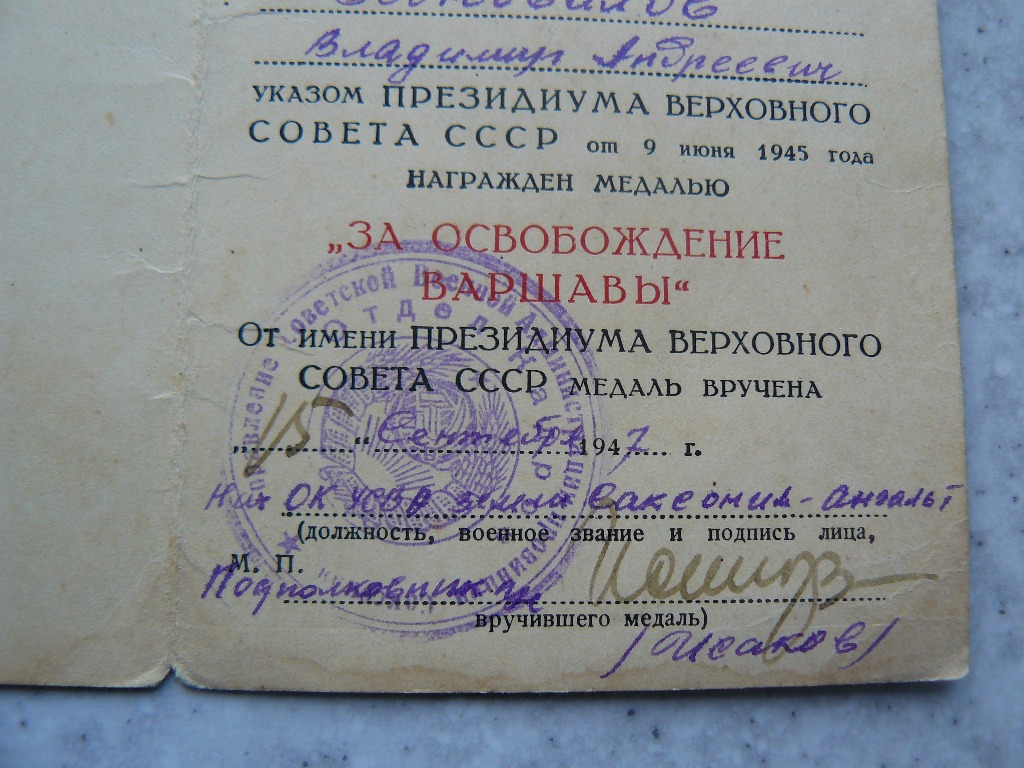 Владимир Андреевич
УКАЗОМ ПРЕЗИДИУМА ВЕРХОВНОГО
СОВЕТА СССР от 9 июня 1945 года
НАГРАЖДЕН МЕДАЛЬЮ
„ЗА ОСВОБОЖДЕНИЕ
ВАРШАВЫ“
От имени ПРЕЗИДИУМА ВЕРХОВНОГО
СОВЕТА СССР МЕДАЛЬ ВРУЧЕНА
„15“ Сентября 1947 г.
Нач ОК УСВА земли Саксония-Ангальт
(должность, военное звание и подпись лица,
М. П.
Подполковник
вручившего медаль)
/Исаков/
Управление Советской Военной Администрации провинции
Отдел кадров